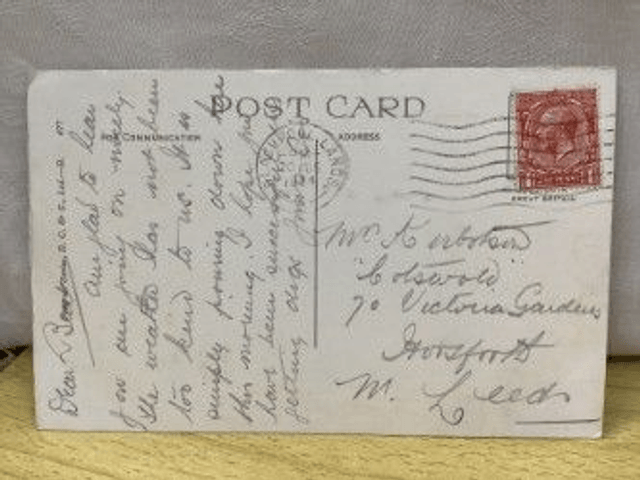 POST CARD
FOR COMMUNICATION
ADDRESS
GREAT BRITAIN
Dear
am glad to hear
you are going on nicely
the weather has not been
too kind to us. It is
simply pouring down
this morning. I hope you
have been successful
getting digs
Mr
Cotswold
70 Victoria Gardens
Horsforth
Nr. Leeds